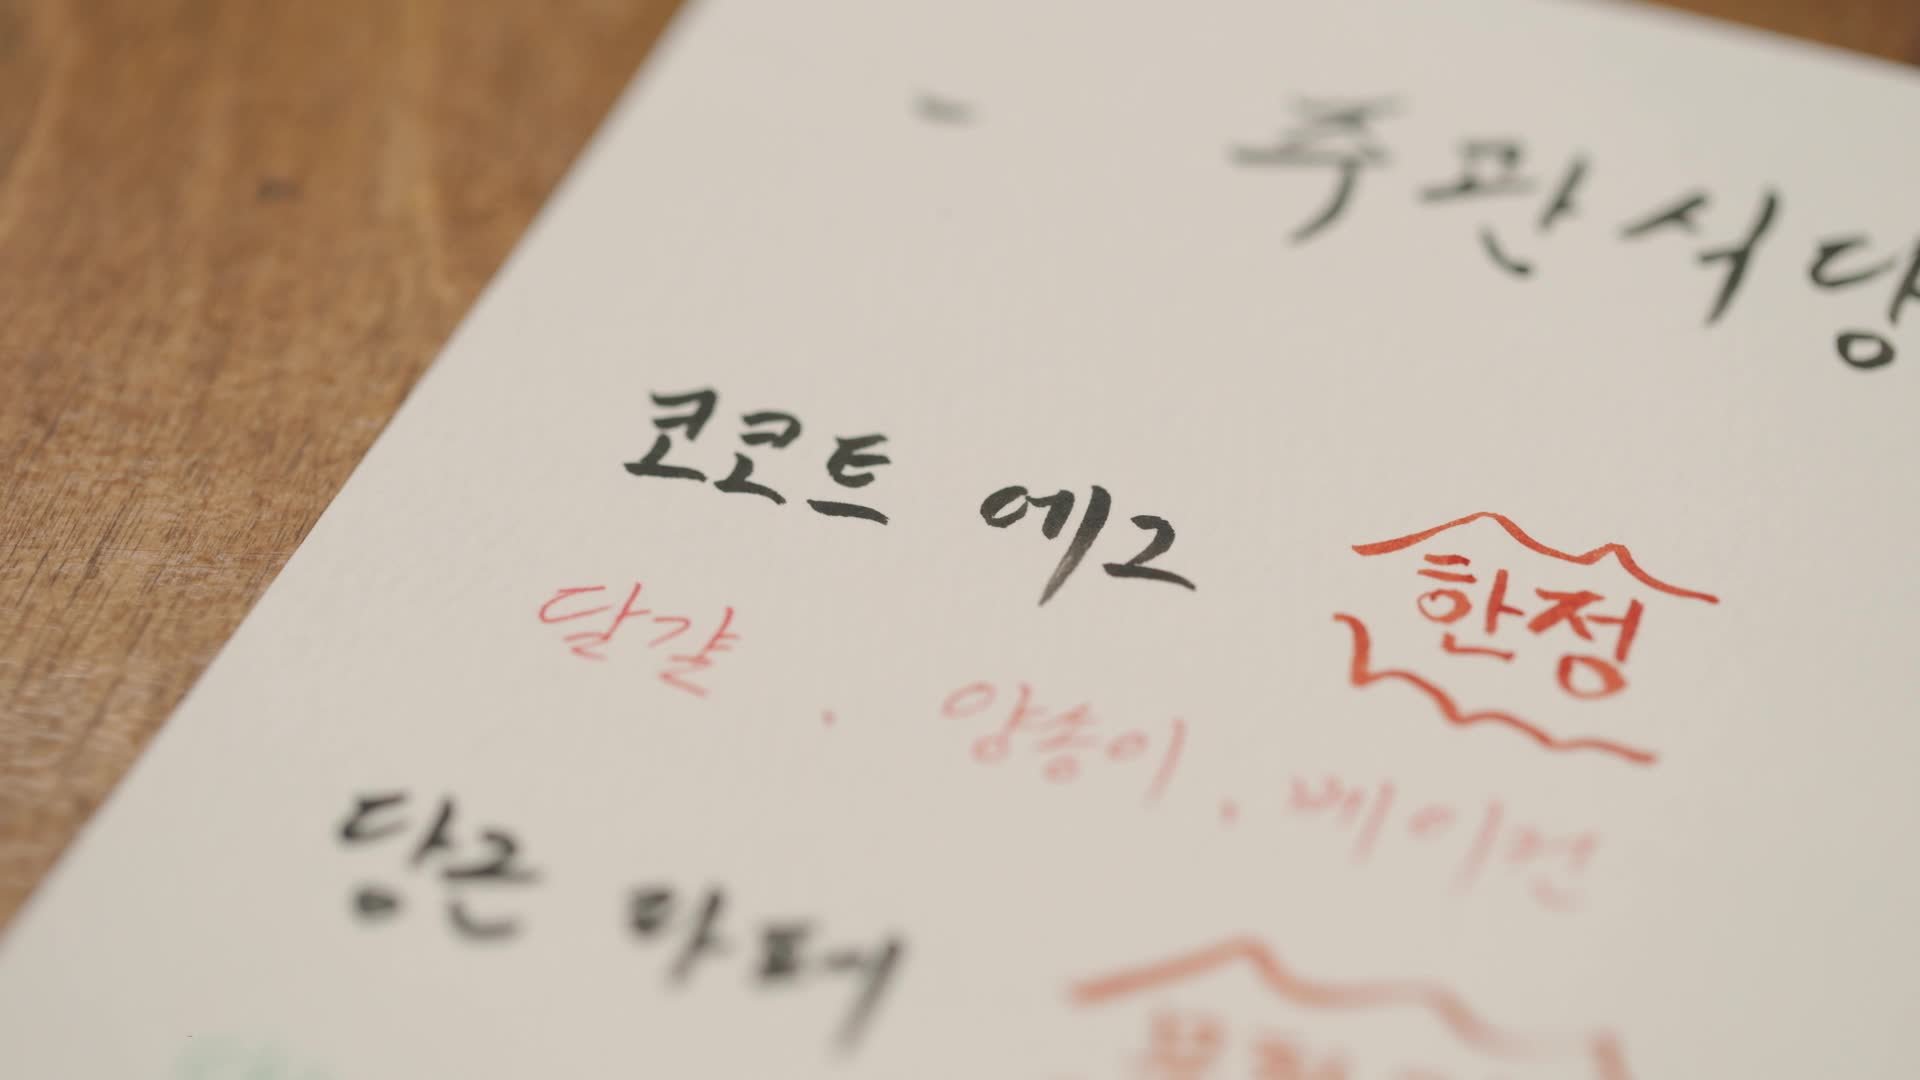 - 주관식당
코코트 에그
한정
달걀, 양송이, 베이컨
당근 라페